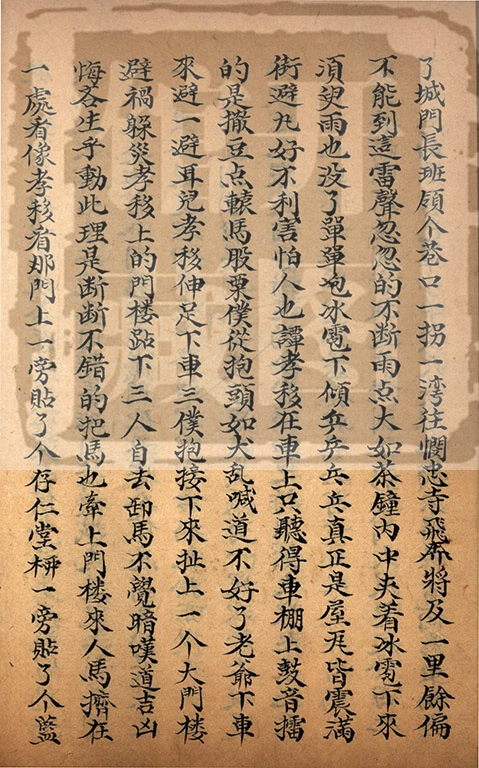 了城門長班領个巷口一拐一湾往憫忠寺飛奔將及一里餘偏
不能到這雷聲忽忽的不断雨点大如茶鐘內中夹着冰雹下來
須臾雨也没了單單冰雹下傾乒乒乓乓真正是屋瓦皆震滿
街避丸好不利害怕人也譚孝移在車上只聽得車棚上鼓音擂
的是撒豆点轅馬股栗僕從抱頭如犬乱喊道不好了老爺下車
來避一避耳兒孝移伸足下車三僕抱接下來扯上一个大門楼
避禍躲災孝移上的門楼跕下三人自去卸馬不覺暗嘆道吉凶
悔吝生乎動此理是断断不錯的把馬也牽上門楼來人馬擠在
一處看像孝移看那門上一旁貼了个存仁堂柳一旁貼了个藍